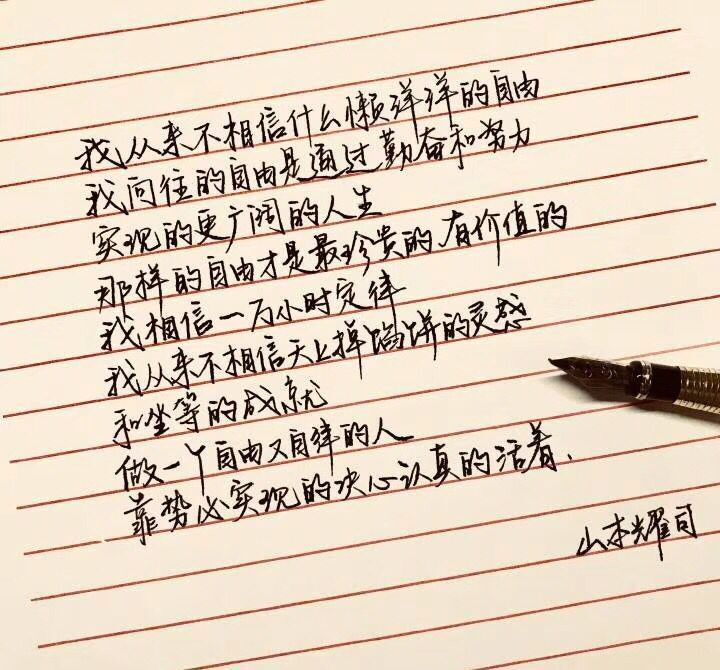 我从来不相信什么懒洋洋的自由
我向往的自由是通过勤奋和努力
实现的更广阔的人生
那样的自由才是最珍贵的有价值的
我相信一万小时定律
我从来不相信天上掉馅饼的灵感
和坐等的成就
做一个自由又自律的人
靠势必实现的决心认真的活着.
山本耀司